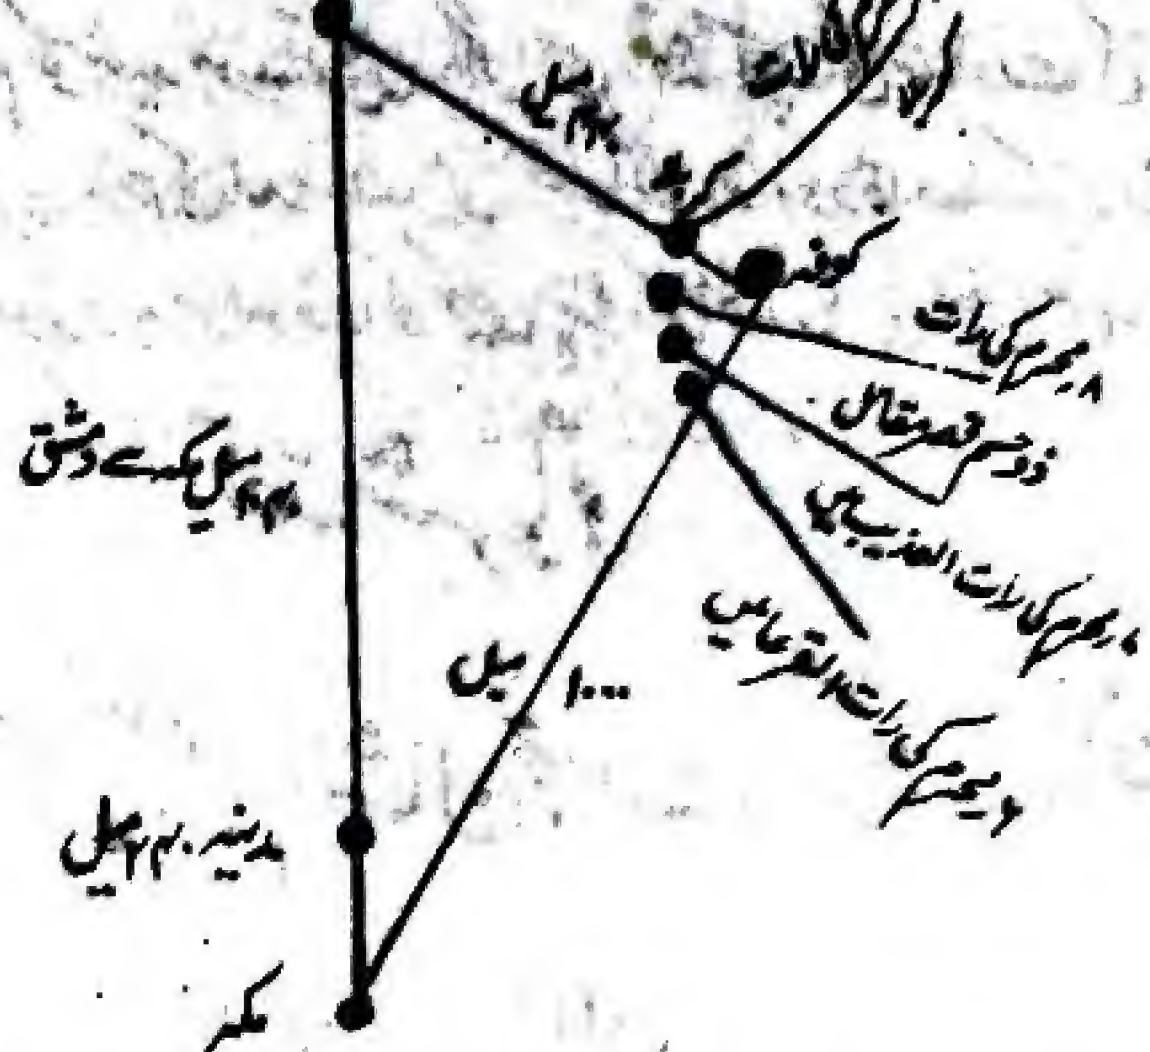 کی رات
میل
کربلا
کوفہ
۸ محرم کی رات
ذو حسم قصر مقاتل
محرم کی رات العذیب میں
۶ محرم کی رات القرعا میں
میل مکہ سے دمشق
۱۰۰۰ میل
مدینہ ۲۴۰ میل
مکہ